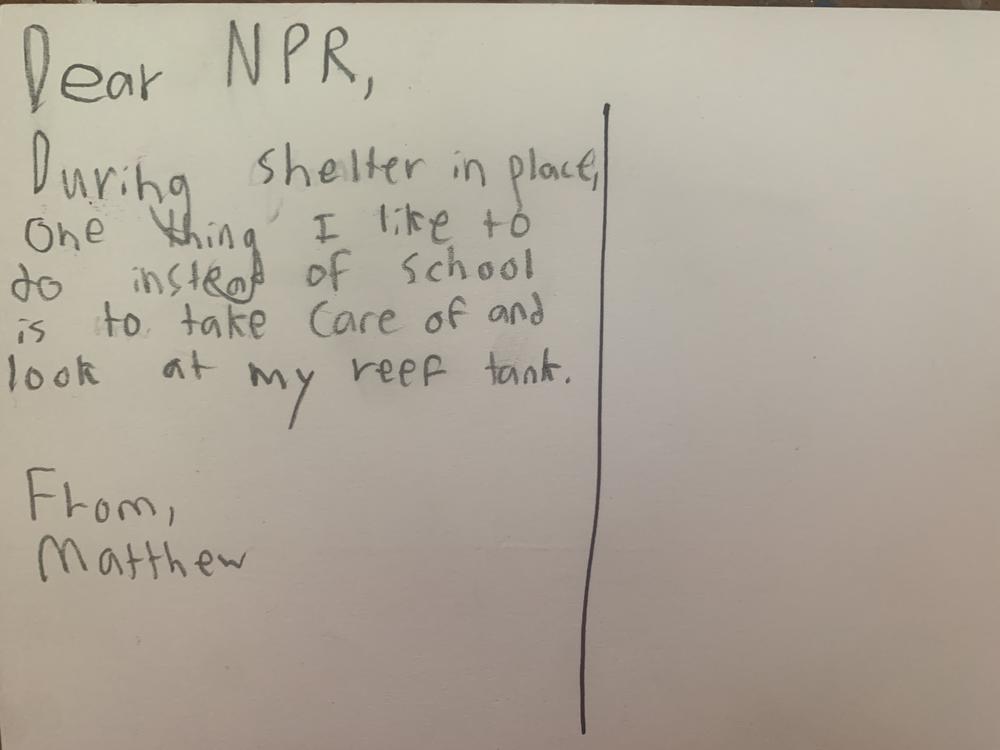 Dear NPR,
During shelter in place,
one thing I like to
do instead of school
is to take care of and
look at my reef tank.
From,
Matthew